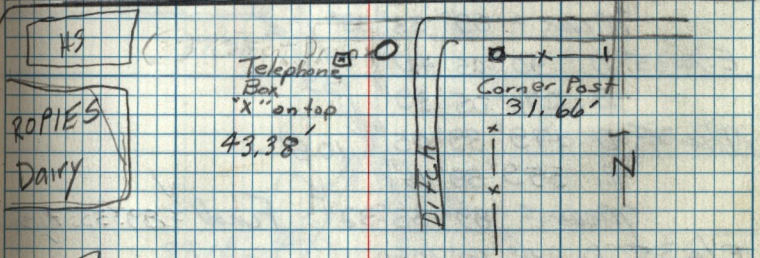 HS
ROPIES
Dairy
Telephone
Box
"X" on top
43,38'
Ditch
Corner Post
31,66'
N